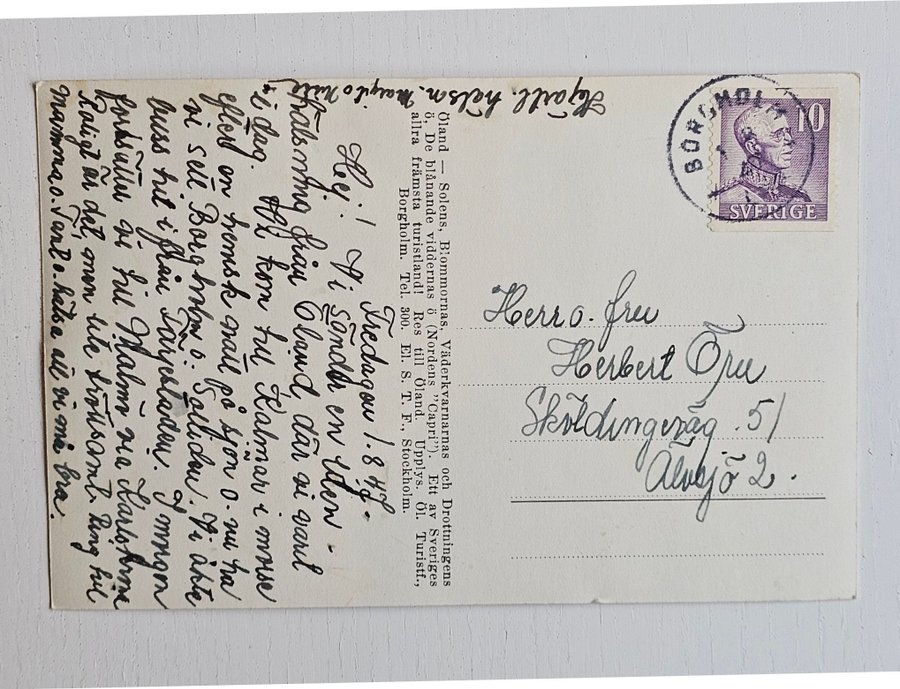 Fredagen 1.8 47.
Hej! Vi sända en liten
hälsning från Öland där vi varit
i dag. Vi kom till Kalmar i morse
efter en hemsk natt på sjön o. nu ha
vi sett Borgholm o. Solliden. Vi åkte
buss hit ifrån Färjestaden. I morgon
fortsätta vi till Malmö via Karlskrona
Roligt är det men lite tröttsamt. Ring till
Mamma o. o. hälsa att vi må bra.
Hjärtl. hälsn. Margit o Nils
Öland — Solens, Blommornas, Väderkvarnarnas och Drottningens
ö, De blånande viddernas ö (Nordens "Capri"). Ett av Sveriges
allra främsta turistland! Res till Öland. Upplys. Öl. Turistf.,
Borgholm. Tel. 300. El. S. T. F., Stockholm.
BORGHOLM
10
SVERIGE
Herr o. fru
Herbert Öru
Sköldingeväg. 51
Älvsjö 2.